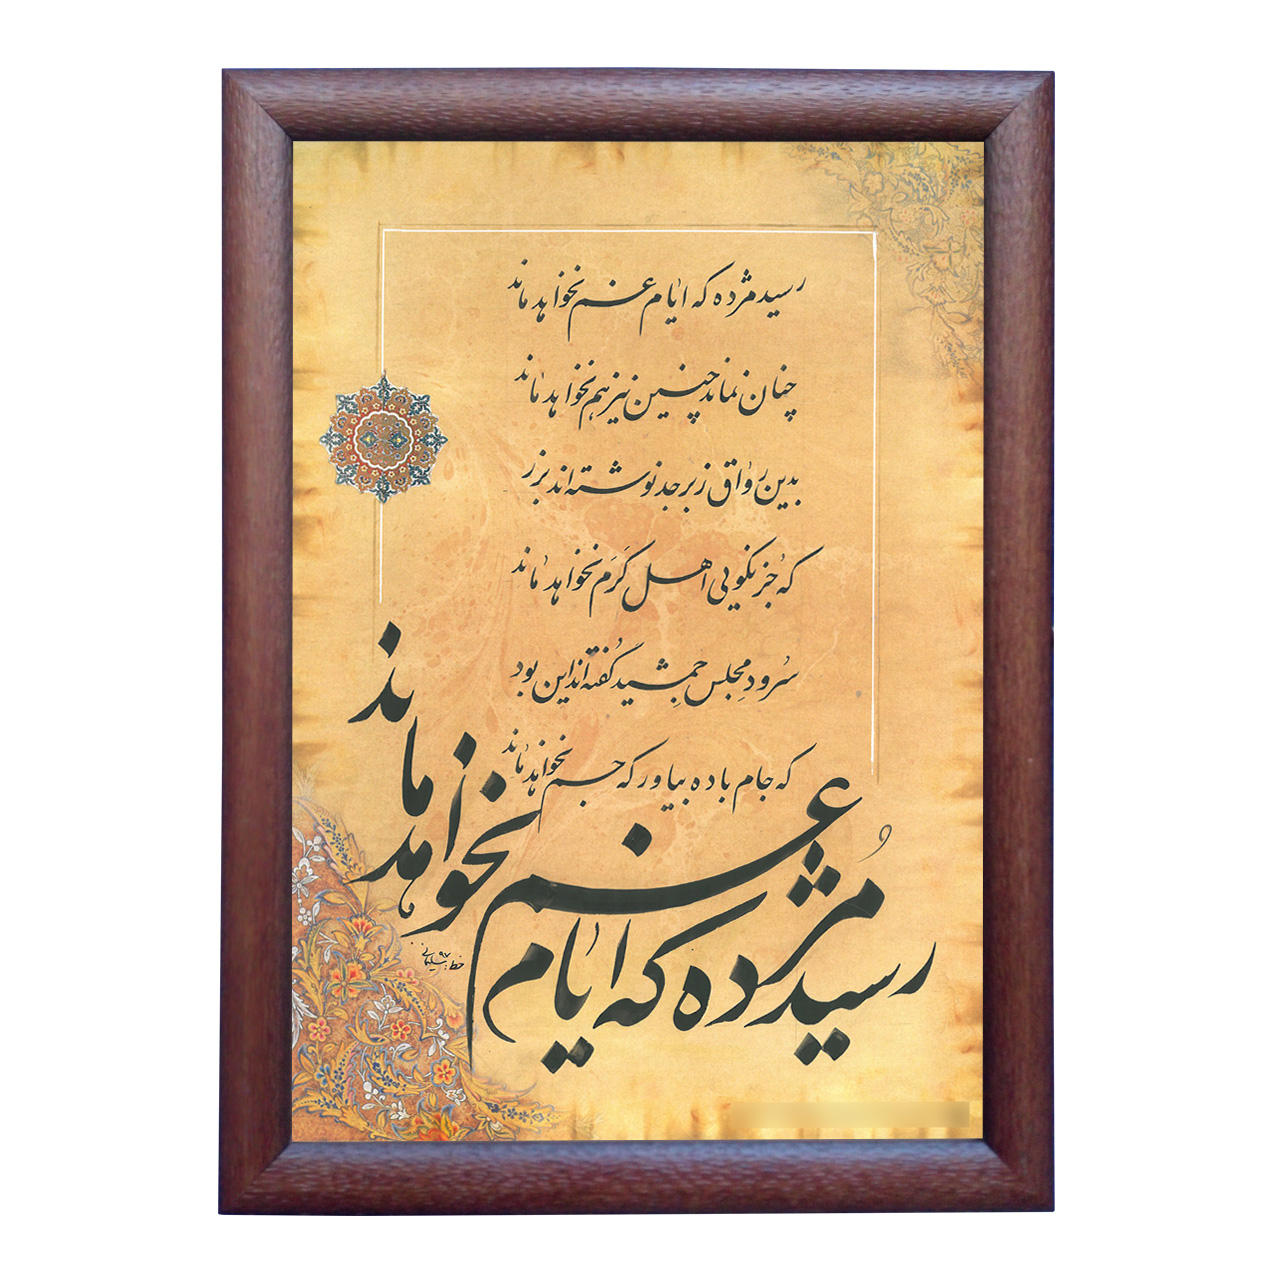 رسید مژده که ایام غم نخواهد ماند
چنان نماند چنین نیز هم نخواهد ماند
بدین رواق زبرجد نوشته‌اند بزر
که جز نکویی اهل کرم نخواهد ماند
سرود مجلس جمشید گفته‌اند این بود
که جام باده بیاور که جم نخواهد ماند
رسید مژده که ایام غم نخواهد ماند
خط: سلیمانی ۹۷